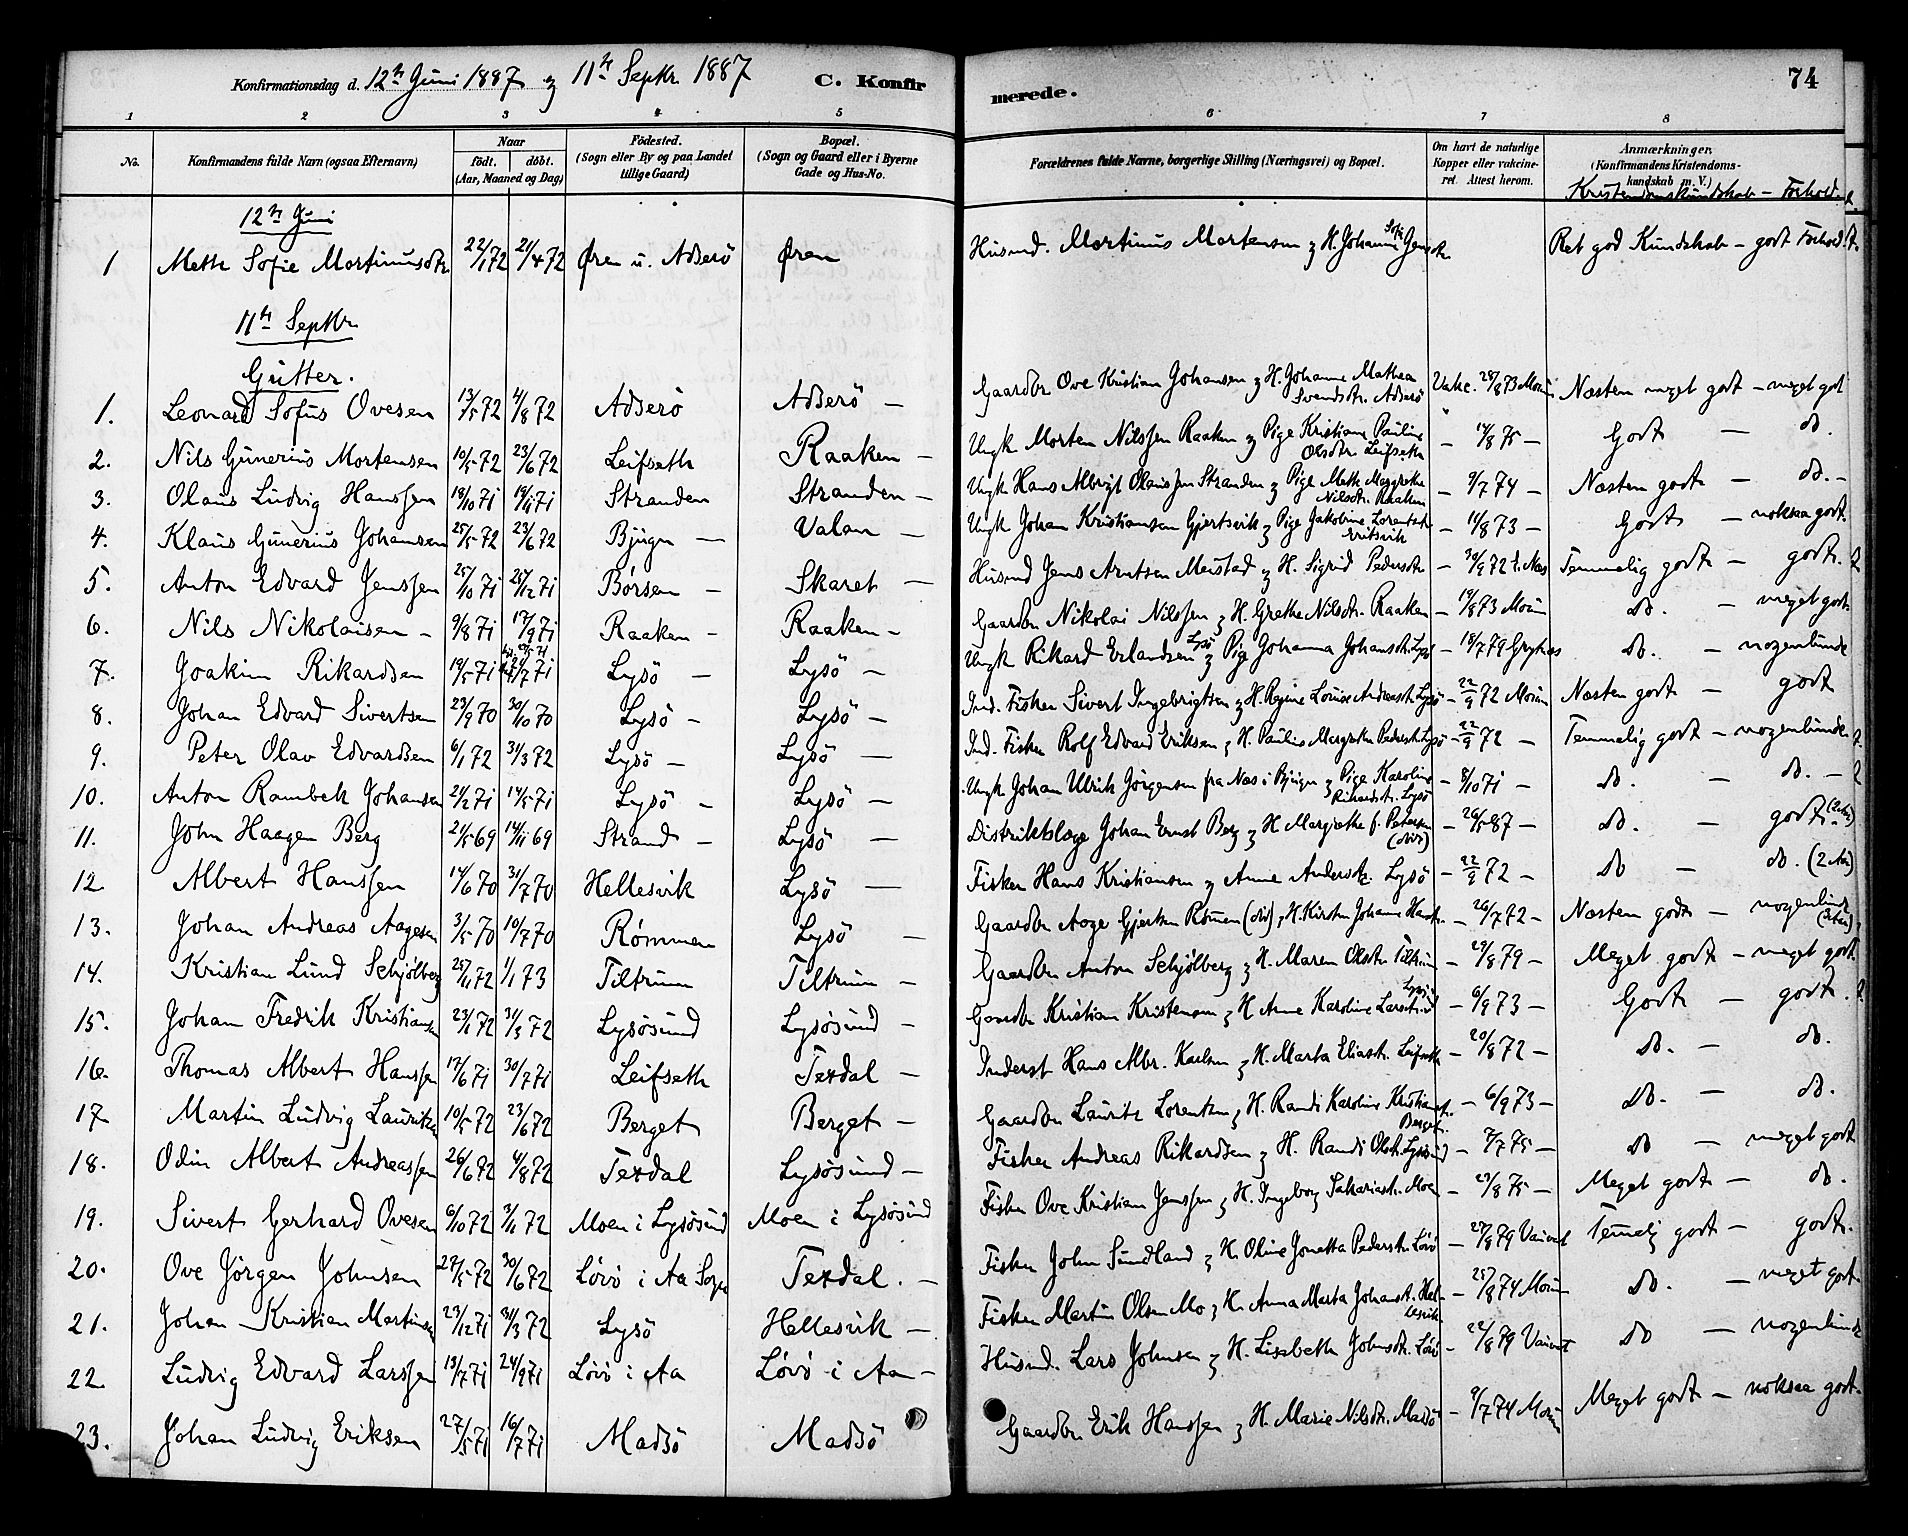 Konfirmationsdag d. 12te Juni 1887 & 11te Septbr. 1887 C. Konfirmerede. 74
1 2 3 4 5 6 7 8
No. Konfirmandens fulde Navn (ogsaa Efternavn) Naar født. døbt. (Aar, Maaned og Dag) Fødested. (Sogn eller By og paa Landet tillige Gaard) Bopæl. (Sogn og Gaard eller i Byerne Gade og Hus-No. Forældrenes fulde Navne, borgerlige Stilling (Næringsvei) og Bopæl. Om havt de naturlige Kopper eller vakcineret. Attest herom. Anmærkninger. (Konfirmandens Kristendomskundskab m. V.)
Kristendomskundskab – Forhold.
12te Juni
1 Meth Sofie Mortinusdtr 22/1 72 21/4 72 Øren u. Adserö Øren Husmd. Mortinus Mortensen & H. Johanna Sofie Jensdtr. Ret god Kundskab – godt Forhold.
11te Septbr.
Gutter.
1. Leonard Sofus Ovesen 13/5 72 4/8 72 Adserö Adserö – Gaardbr Ove Kristian Johansen & H. Johanne Mathea Svendsdtr. Adserö Vakc. 28/8 73 Næsten meget godt – meget godt
2. Nils Gunerius Mortensen 10/5 72 23/6 72 Leifseth Raaken – Ungk Morten Nilssen Raaken & Pige Kristiane Pauline Olsdtr. Leifseth – 17/8 75 – Godt – do.
3. Olaus Ludvig Hanssen 18/10 71 19/11 71 Stranden Stranden – Ungk Hans Albrigt Olaussen Stranden & Pige Meth Margrethe Nilsdtr. Raaken – 9/7 74 – Næsten godt – do. –
4. Klaus Gunerius Johansen 25/5 72 23/6 72 Bjugn – Valan – Ungk Johan Kristiansen Gjertsvik & Pige Jakobine Lorentsdtr – 11/8 73 – Godt – noksaa godt.
5. Anton Edvard Jenssen 25/10 71 25/12 71 Børsen – Skaret – Husmd Jens Arntsen Meistad & H. Sigrid Pedersdtr – 30/9 72 Temmelig godt – godt.
6. Nils Nikolaisen – 9/8 71 17/9 71 Raaken – Raaken – Gaardbr Nikolai Nilssen & H. Grethe Nilsdtr. Raaken – 19/8 73 do. – meget godt
7. Joakim Rikardsen 19/5 71 7/71 Lysö – Lysö – Ungk Rikard Erlandsen Lysö & Pige Johanna Johansdtr. Lysö – 18/7 79 do. – nogenlunde
8. Johan Edvard Sivertsen 23/9 70 30/10 70 Lysö – Lysö – Ind. Fisker Sivert Ingebrigtsen & H. Regine Lovise Andreasdtr Lysö – 22/9 72 Næsten godt – godt
9. Peter Olav Edvardsen 6/1 72 31/3 72 Lysö – Lysö – Ind. Fisker Rolf Edvard Eriksen & H. Pauline Margrethe Pedersdtr. Lysö – 22/9 72 – Temmelig godt – nogenlunde
10. Anton Rambek Johansen 21/2 71 14/5 71 Lysö – Lysö – Ungk Johan Ulrik Jörgensen fra Næs i Bjugn & Pige Karoline Rikardsdtr. Lysö – 8/10 71 – do. – do. –
11. John Haagen Berg 21/5 69 14/11 69 Strand – Lysö – Distriktslæge Johan Ernst Berg & H Margrethe f. Petersen – 26/5 87 – do. – godt.
12 Albert Hanssen 14/6 70 31/7 70 Hellesvik Lysö – Fisker Hans Kristiansen & Anne Andersdtr. Lysö – 22/9 72 – do – do.
13. Johan Andreas Aagesen 3/5 70 10/7 70 Rømmen Lysö – Gaardbr Aage Gjertsen Römmen & H. Kirsten Johanne Hansdtr. – 26/7 72 – Næsten godt – nogenlunde
14. Kristian Lund Schjölberg 25/11 72 1/1 73 Tiltrum Tiltrum – Gaardbr Anton Schjölberg & H. Maren Olsdtr. Tiltrum – 29/8 79 – Meget godt – meget godt
15. Johan Fredrik Kristiansen 23/1 72 31/3 72 Lysösund Lysösund – Gaardbr Kristian Kristensen & H Anne Karoline Larsdtr. – 6/9 73 – Godt – godt.
16. Thomas Albert Hanssen 17/6 71 30/7 71 Leifseth Texdal – Inderst Hans Albr. Karlsen & H. Marta Eliasdtr. Leifseth – 20/8 72 – do. – do.
17 Martin Ludvig Lauritzen 10/5 72 23/6 72 Berget Berget – Gaardbr Lauritz Lorentzen & H. Randi Karoline Kristiansdtr. Berget. – 6/9 73 – do. – do.
18. Odin Albert Andreassen 26/6 72 4/8 72 Texdal Lysösund – Fisker Andreas Rikardsen & H. Randi Olsdtr. Lysösund – 7/7 75 – do – meget godt
19. Sivert Gerhard Ovesen 6/10 72 3/11 72 Moen i Lysösund Moen i Lysösund Fisker Ove Kristian Jenssen & H. Ingeborg Sakariasdtr. Moen – 29/8 75 – Meget godt – do.
20. Ove Jörgen Johnsen 27/5 72 30/6 72 Lövö i Aa Sogn Texdal. – Fisker John Sundland & H. Oline Jonetta Pedersdtr. Lövö – 27/8 79 Temelig godt – godt.
21. Johan Kristian Martinsen 23/12 71 31/3 72 Lysö Hellesvik – Fisker Martin Olsen Mo & H. Anna Marta Johansdt. Hellesvik – 25/8 74 do. – meget godt
22. Ludvig Edvard Larssen 13/7 71 24/9 71 Lövö i Aa Lövö i Aa – Husmd. Lars Johnsen & H. Lisebeth Johnsdtr. Lövö – 22/8 79 do – nogenlunde
23. Johan Ludvig Eriksen 27/5 71 16/7 71 Madsö Madsö Gaardbr Erik Hanssen & H. Marie Nilsdtr. Madsö – 9/7 74 Meget godt – noksaa godt.